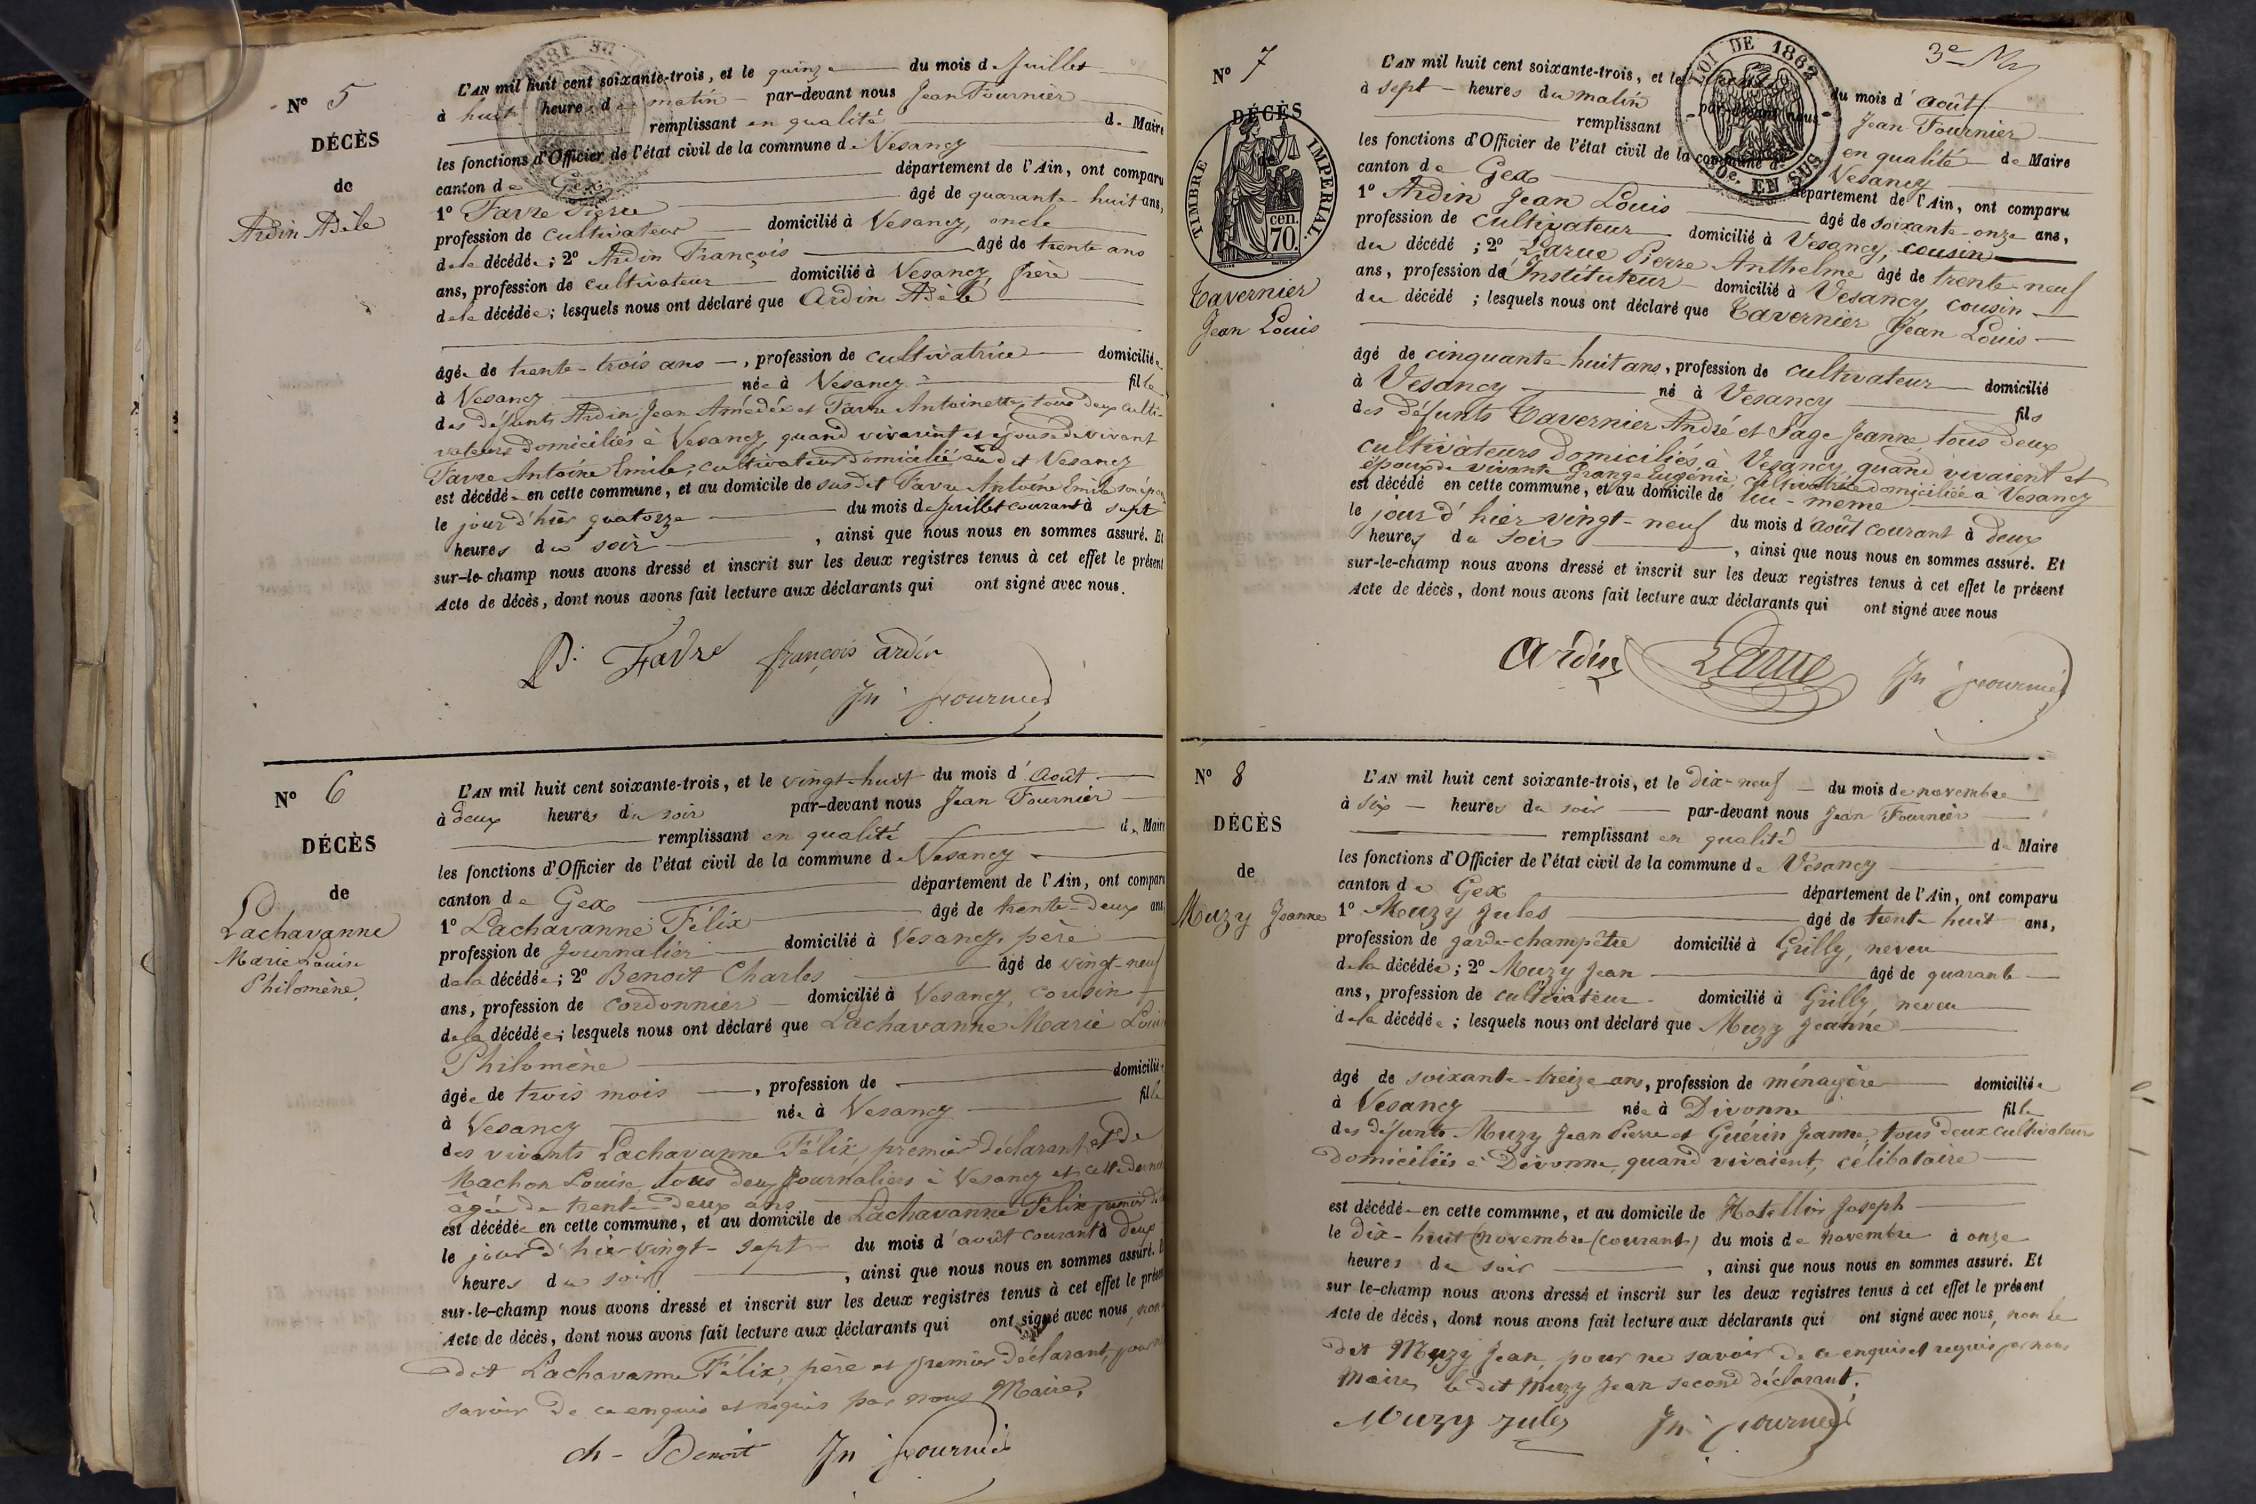 N° 5
DÉCÈS
de
Ardin Adèle
L'AN mil huit cent soixante-trois, et le quinze du mois de Juillet
à huit heures du matin par-devant nous Jean Fournier
remplissant en qualité de Maire
les fonctions d'Officier de l'état civil de la commune de Vesancy
canton de Gex département de l'Ain, ont comparu
1° Favre Pierre âgé de quarante-huit ans,
profession de cultivateur domicilié à Vesancy, oncle
de la décédée; 2° Ardin François âgé de trente ans
ans, profession de cultivateur domicilié à Vesancy, frère
de la décédée; lesquels nous ont déclaré que Ardin Adèle
âgée de trente-trois ans, profession de cultivatrice domiciliée
à Vesancy née à Vesancy fille
des défunts Ardin Jean Amédée et Favre Antoinette, tous deux culti-
vateurs domiciliés à Vesancy, quand vivaient et épouse de vivant
Favre Antoine Emile, cultivateur domicilié au dit Vesancy
est décédée en cette commune, et au domicile de susdit Favre Antoine Emile son époux
le jour d'hier quatorze du mois de Juillet courant à sept
heures du soir, ainsi que nous nous en sommes assuré. Et
sur-le-champ nous avons dressé et inscrit sur les deux registres tenus à cet effet le présent
Acte de décès, dont nous avons fait lecture aux déclarants qui ont signé avec nous.
P. Favre françois ardin
Jn fournier
N° 6
DÉCÈS
de
Lachavanne
Marie Louise
Philomène
L'AN mil huit cent soixante-trois, et le vingt-huit du mois d'Août
à deux heures du soir par-devant nous Jean Fournier
remplissant en qualité de Maire
les fonctions d'Officier de l'état civil de la commune de Vesancy
canton de Gex département de l'Ain, ont comparu
1° Lachavanne Félix âgé de trente-deux ans
profession de Journalier domicilié à Vesancy, père
de la décédée; 2° Benoit Charles âgé de vingt-neuf
ans, profession de cordonnier domicilié à Vesancy, cousin
de la décédée; lesquels nous ont déclaré que Lachavanne Marie Louise
Philomène
âgée de trois mois, profession de domiciliée
à Vesancy née à Vesancy fille
des vivants Lachavanne Félix, premier déclarant et de
Machon Louise, tous deux Journaliers à Vesancy et cette
âgée de trente-deux ans
est décédée en cette commune, et au domicile de Lachavanne Félix premier
le jour d'hier vingt-sept du mois d'août courant à deux
heures du soir, ainsi que nous nous en sommes assuré. Et
sur-le-champ nous avons dressé et inscrit sur les deux registres tenus à cet effet le présent
Acte de décès, dont nous avons fait lecture aux déclarants qui ont signé avec nous, non
dit Lachavanne Félix, père et premier déclarant, pour
savoir de ce enquis et requis par nous Maire.
ch - Benoit Jn fournier
3e
N° 7
DÉCÈS
de
TIMBRE IMPÉRIAL
cen. 70.
LOI DE 1862
10c. EN SUS
Tavernier
Jean Louis
L'AN mil huit cent soixante-trois, et le du mois d'août
à sept heures du matin par-devant nous Jean Fournier
remplissant en qualité de Maire
les fonctions d'Officier de l'état civil de la commune de Vesancy
canton de Gex département de l'Ain, ont comparu
1° Ardin Jean Louis âgé de soixante-onze ans,
profession de cultivateur domicilié à Vesancy, cousin
du décédé; 2° Larue Pierre Anthelme âgé de trente-neuf
ans, profession d'Instituteur domicilié à Vesancy, cousin
du décédé; lesquels nous ont déclaré que Tavernier Jean Louis
âgé de cinquante-huit ans, profession de cultivateur domicilié
à Vesancy né à Vesancy fils
des défunts Tavernier André et Page Jeanne, tous deux
cultivateurs domiciliés à Vesancy quand vivaient et
époux de vivante Grange Eugénie, cultivatrice domiciliée à Vesancy
est décédé en cette commune, et au domicile de lui-même
le jour d'hier vingt-neuf du mois d'août courant à deux
heures du soir, ainsi que nous nous en sommes assuré. Et
sur-le-champ nous avons dressé et inscrit sur les deux registres tenus à cet effet le présent
Acte de décès, dont nous avons fait lecture aux déclarants qui ont signé avec nous
Ardin Larue Jn fournier
N° 8
DÉCÈS
de
Muzy Jeanne
L'AN mil huit cent soixante-trois, et le dix-neuf du mois de novembre
à six heures du soir par-devant nous Jean Fournier
remplissant en qualité de Maire
les fonctions d'Officier de l'état civil de la commune de Vesancy
canton de Gex département de l'Ain, ont comparu
1° Muzy Jules âgé de trente huit ans,
profession de garde-champêtre domicilié à Grilly, neveu
de la décédée; 2° Muzy Jean âgé de quarante
ans, profession de cultivateur domicilié à Grilly, neveu
de la décédée; lesquels nous ont déclaré que Muzy Jeanne
âgé de soixante-treize ans, profession de ménagère domiciliée
à Vesancy née à Divonne fille
des défunts Muzy Jean Pierre et Guérin Jeanne, tous deux cultivateurs
domiciliés à Divonne, quand vivaient, célibataire
est décédée en cette commune, et au domicile de Hotellier Joseph
le dix-huit (novembre (courant) du mois de novembre à onze
heures du soir, ainsi que nous nous en sommes assuré. Et
sur le-champ nous avons dressé et inscrit sur les deux registres tenus à cet effet le présent
Acte de décès, dont nous avons fait lecture aux déclarants qui ont signé avec nous, non le
dit Muzy Jean, pour ne savoir de ce enquis et requis par nous
Maire, le dit Muzy Jean second déclarant.
Muzy jules Jn fournier